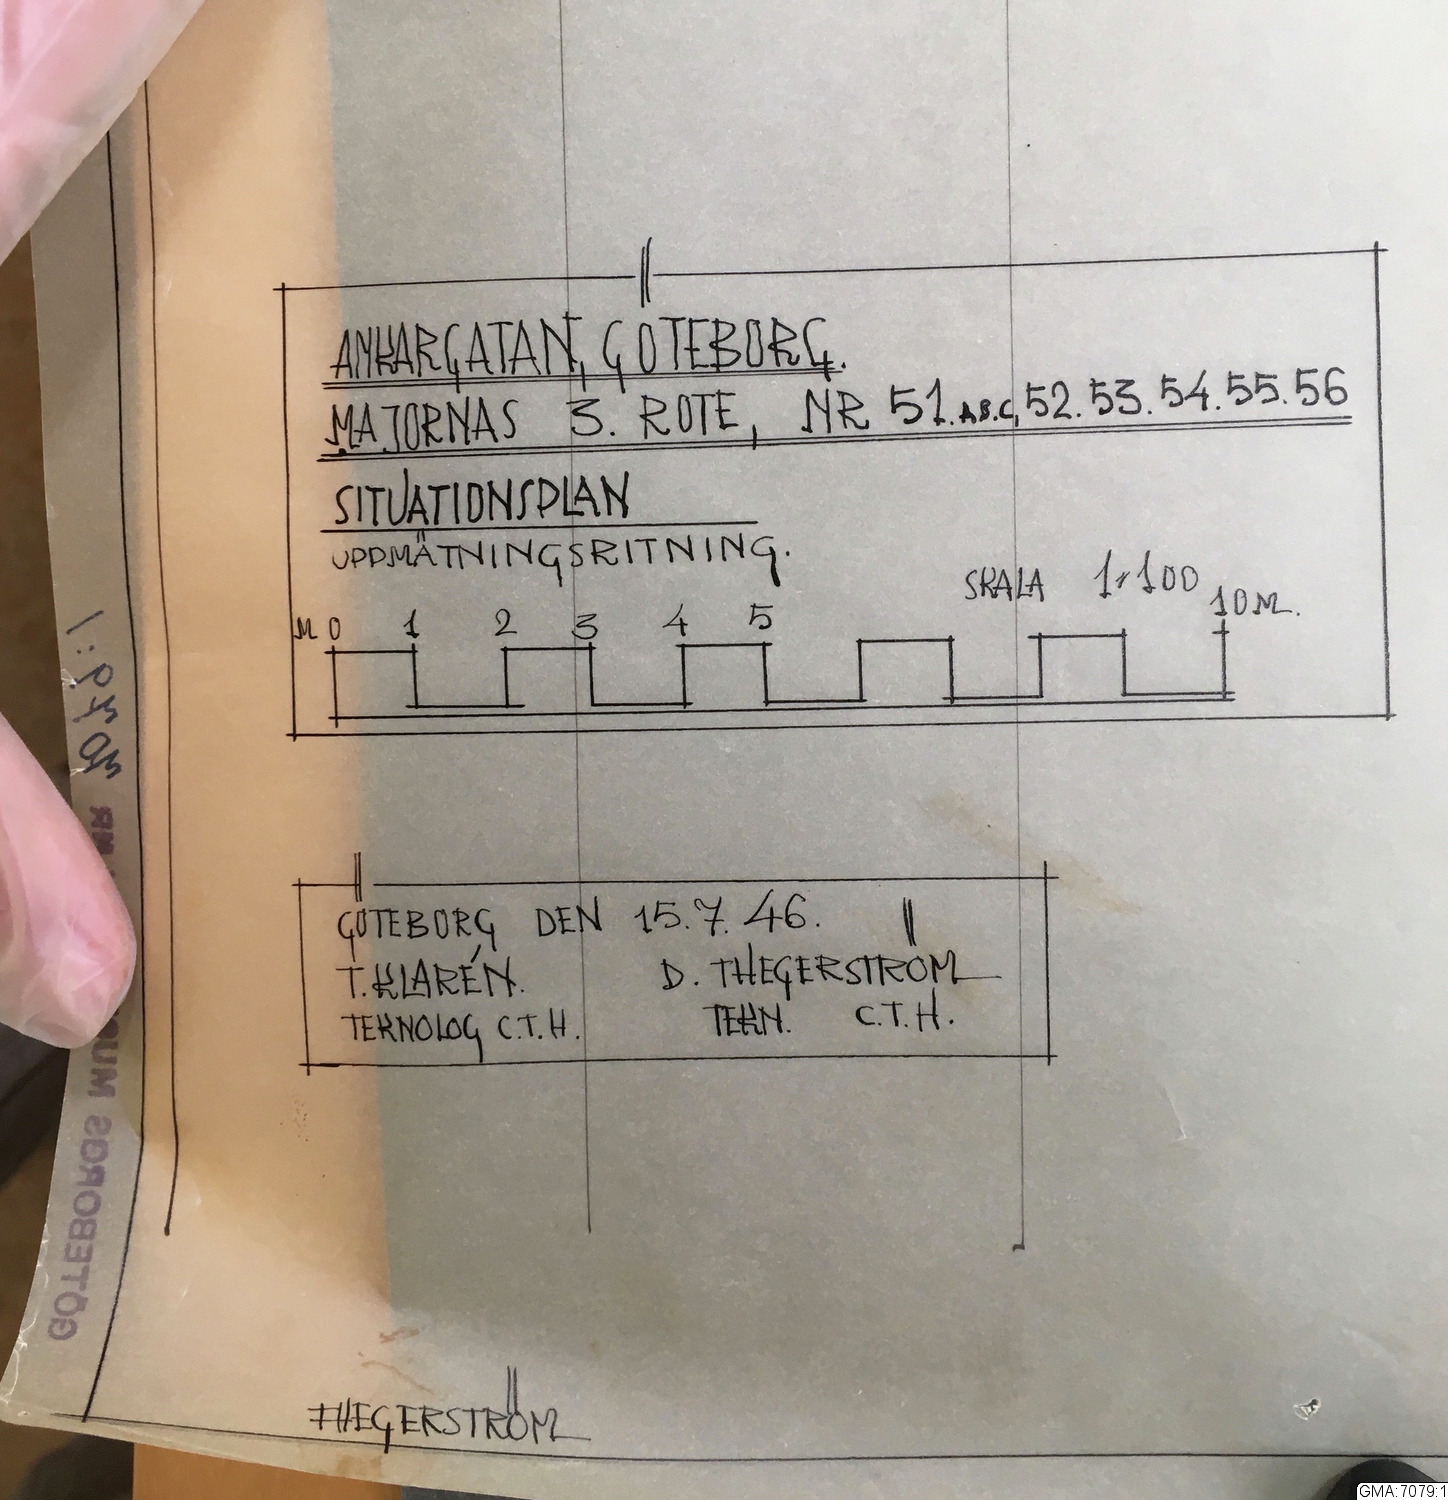 ANKARGATAN, GÖTEBORG.
MAJORNAS 3. ROTE, NR 51.A.B.C, 52. 53. 54. 55. 56
SITUATIONSPLAN
UPPMÄTNINGSRITNING.
SKALA 1:100
M 0 1 2 3 4 5 10 M.
GÖTEBORG DEN 15.7.46.
T. KLARÉN. D. THEGERSTRÖM
TEKNOLOG C.T.H. TEKN. C.T.H.
THEGERSTRÖM
GÖTEBORGS NR 7079:1
GMA:7079:1